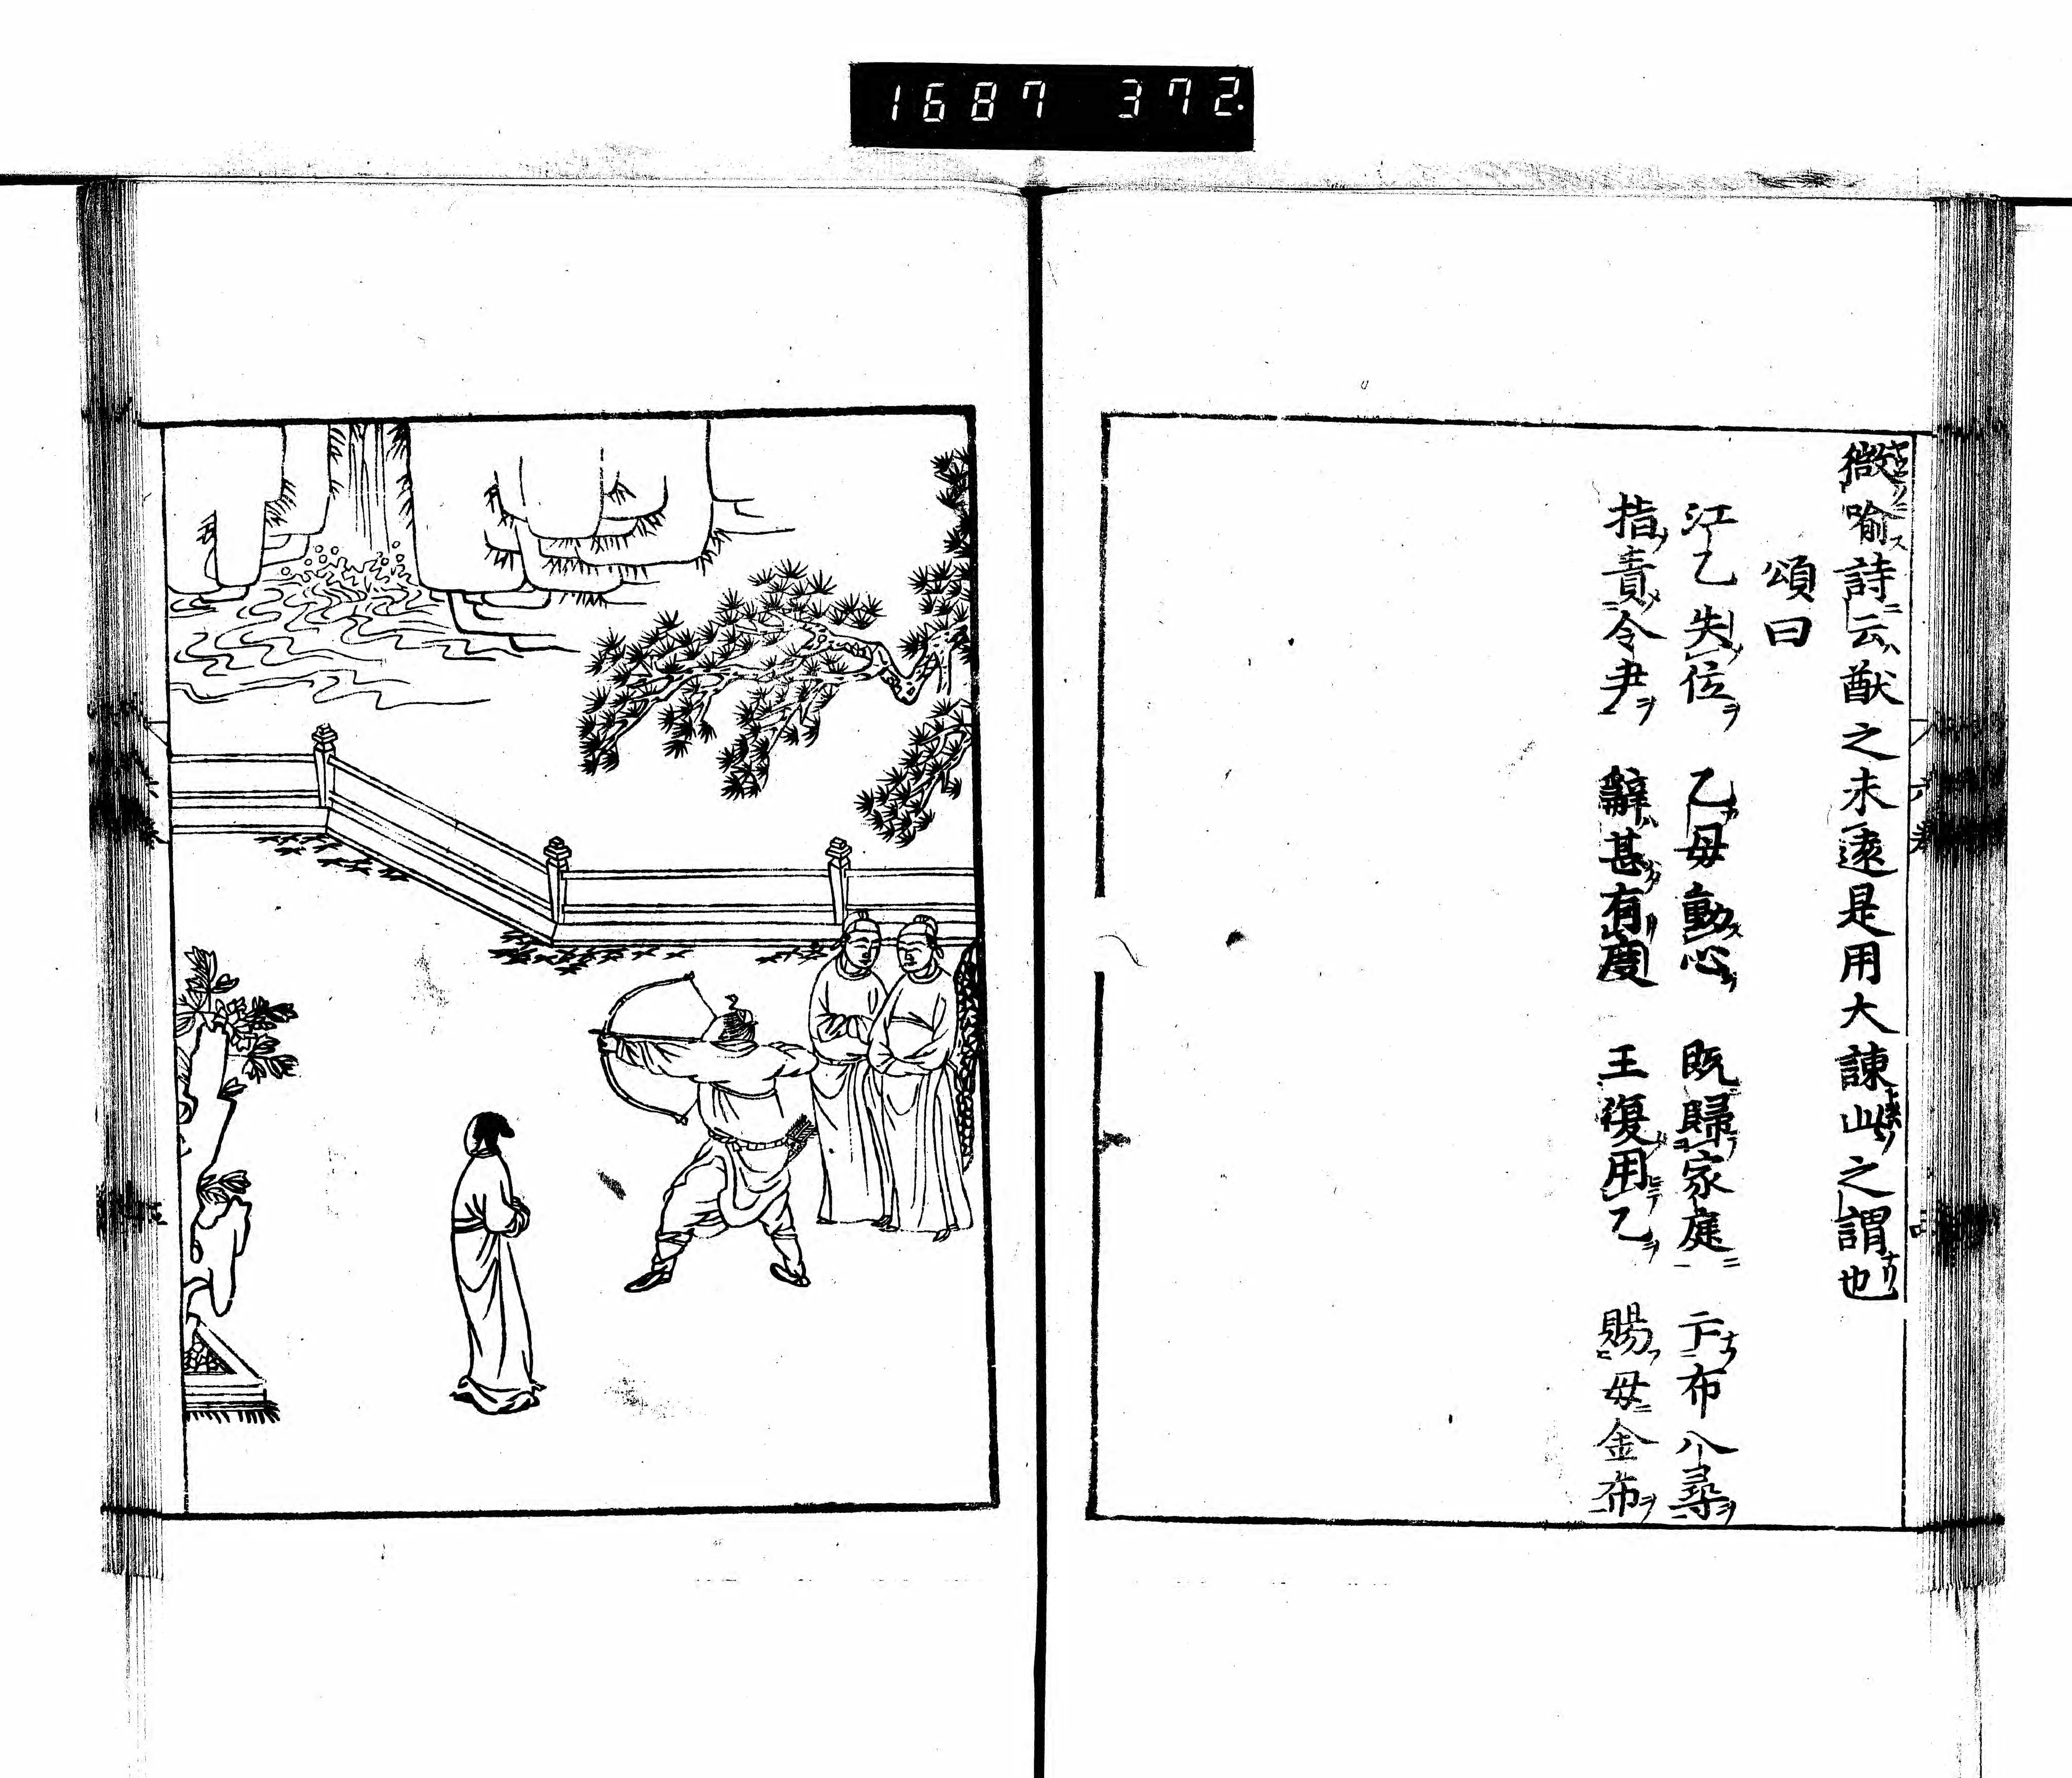 1687 372
微喻詩云猷之未遠是用大諫此之謂也
頌曰
江乙失位 乙母動心 既歸家庭 亡布八尋
指責令尹 辭甚有度 王復用乙 賜母金布